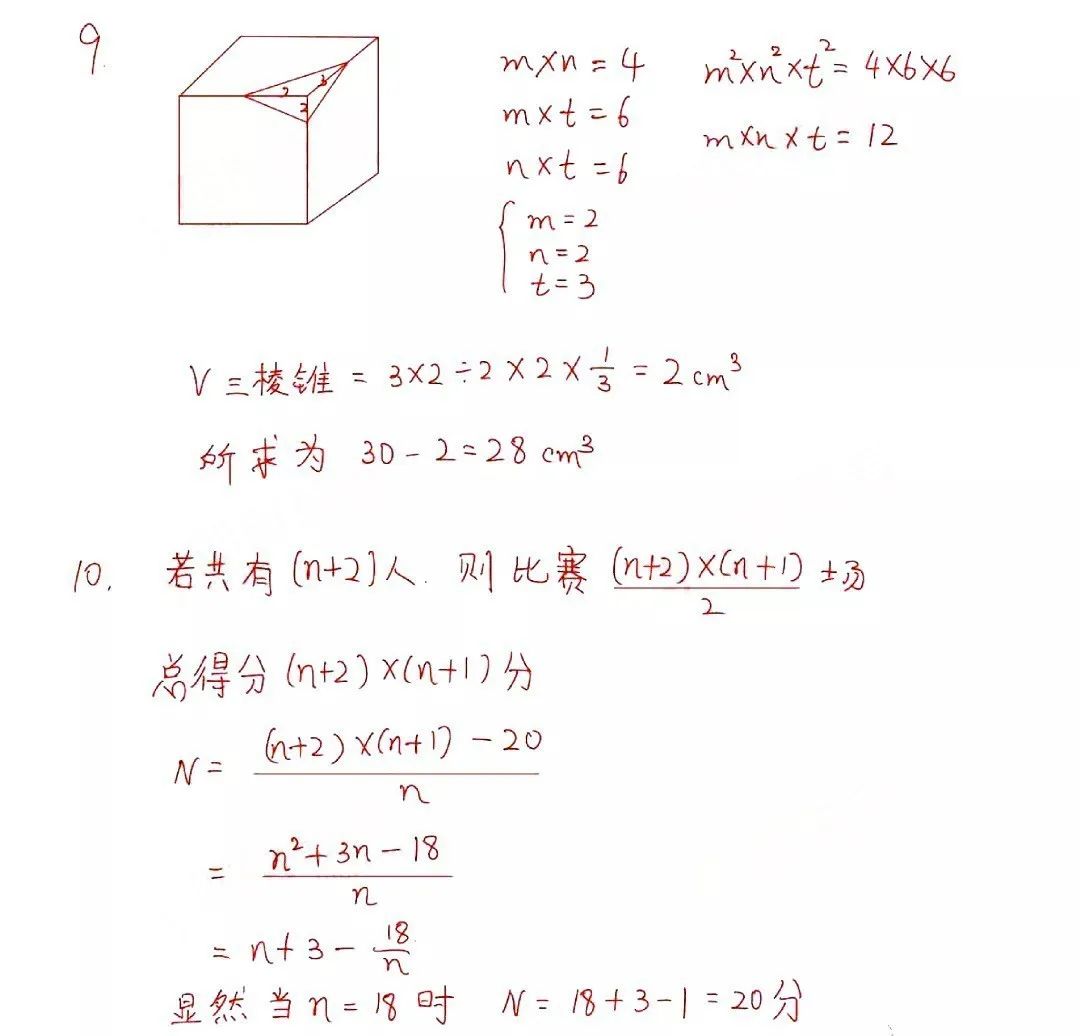 9.
2 3 2
m×n=4 m²×n²×t²=4×6×6
m×t=6
m×n×t=12
n×t=6
{ m=2
n=2
t=3
V三棱锥 = 3×2÷2×2×1/3 = 2cm³
所求为 30-2=28 cm³
10. 若共有(n+2)人. 则比赛 (n+2)×(n+1)/2 场
总得分(n+2)×(n+1)分
N = ((n+2)×(n+1)-20)/n
= (n²+3n-18)/n
= n+3-18/n
显然当n=18时 N=18+3-1=20分